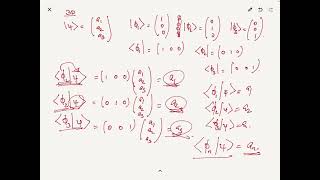 3D
|ψ⟩ = (a₁ a₂ a₃) |ϕ₁⟩ = (1 0 0) |ϕ₂⟩ = (0 1 0) |ϕ₃⟩ = (0 0 1)
⟨ϕ₁| = (1 0 0) ⟨ϕ₂| = (0 1 0)
⟨ϕ₃| = (0 0 1)
⟨ϕ₁|ψ⟩ = (1 0 0) (a₁ a₂ a₃) = a₁
⟨ϕ₁|ψ⟩ = a
⟨ϕ₂|ψ⟩ = (0 1 0) (a₁ a₂ a₃) = a₂
⟨ϕ₂|ψ⟩ = a₂
⟨ϕ₃|ψ⟩ = (0 0 1) (a₁ a₂ a₃) = a₃
⟨ϕ₃|ψ⟩ = a
⟨ϕₙ|ψ⟩ = aₙ